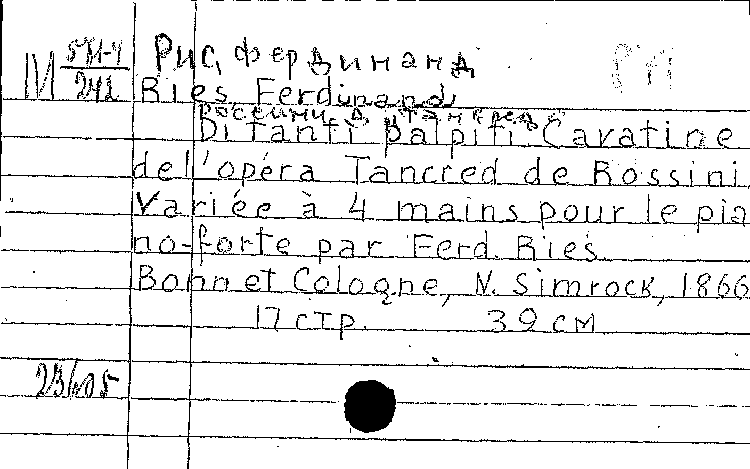 М 571-4
242
Рис, Фердинанд
РМ
Ries Ferdinand
Россини Д. "Танкред"
Di tanti palpiti Cavatine
del'opéra Tancred de Rossini
Variée à 4 mains pour le pia
no-forte par Ferd. Ries
Bonn et Cologne, N. Simrock, 1866
17 стр. 39 см